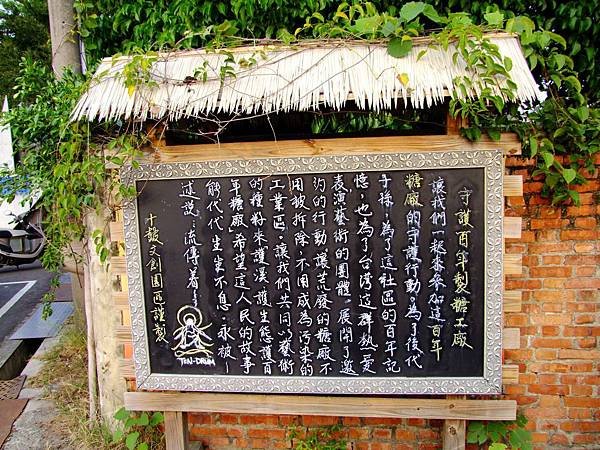 守護百年製糖工廠
讓我們一起來參加這百年
糖廠的守護行動。為了後代
子孫，為了這社區的百年記
憶，也為了台灣這群熱愛
表演藝術的團體，展開了邀
約的行動讓荒廢的糖廠不
用被拆除，不用成為污染的
工業區，讓我們共同以藝術
的種籽來護漢護生態護百
年糖廠，希望這人民的故事
能代代生生不息，永被
述說，流傳著
十鼓文創園區謹製
TEN-DRUM